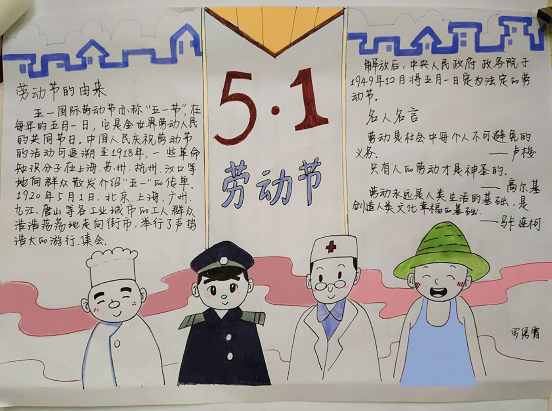 劳动节的由来
五一国际劳动节亦称“五一节”,在
每年的五月一日。它是全世界劳动人民
的共同节日。中国人民庆祝劳动节
的活动可追溯至1918年,一些革命
知识分子在上海、苏州、杭州、汉口等
地向群众散发介绍“五一”的传单。
1920年5月1日,北京、上海、广州、
九江、唐山等各工业城市的工人群众
浩浩荡荡地走向街市,举行了声势
浩大的游行、集会。
5·1
劳动节
解放后,中央人民政府政务院于
1949年12月将五月一日定为法定的劳
动节。
名人名言
劳动是社会中每个人不可避免的
义务。——卢梭
只有人的劳动才是神圣的。
——高尔基
劳动永远是人类生活的基础,是
创造人类文化幸福的基础。
——马卡连柯